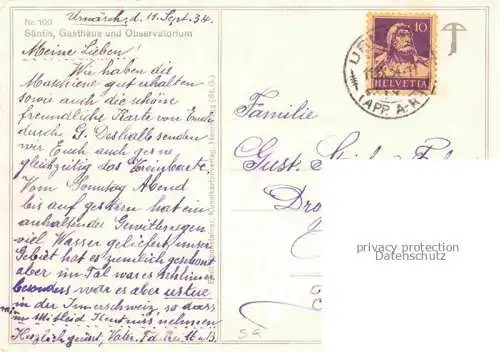 Nr. 109
Säntis, Gasthaus und Observatorium
Urnäsch, d. 11. Sept. 34.
Meine Lieben!
Wir haben die
Maschiene gut erhalten
sowie auch die schöne
freundliche Karte von Euch
durch G. Deshalb senden
wir Euch auch gerne
gleichzeitig das
Vom Sonntag Abend
bis auf gestern hat ein
anhaltender Gewitterregen
viel Wasser geliefert, unser
Gebiet hat es ziemlich geschont
aber im Tal war es schlimmer
besonders war es aber
in der Innerschweiz, so dass
man mit Mitleid Kentniss nehmen
Herzlich grüsst, Vater.
10
HELVETIA
(APP. A.-R.
Familie
Gust.
Dro
privacy protection
Datenschutz